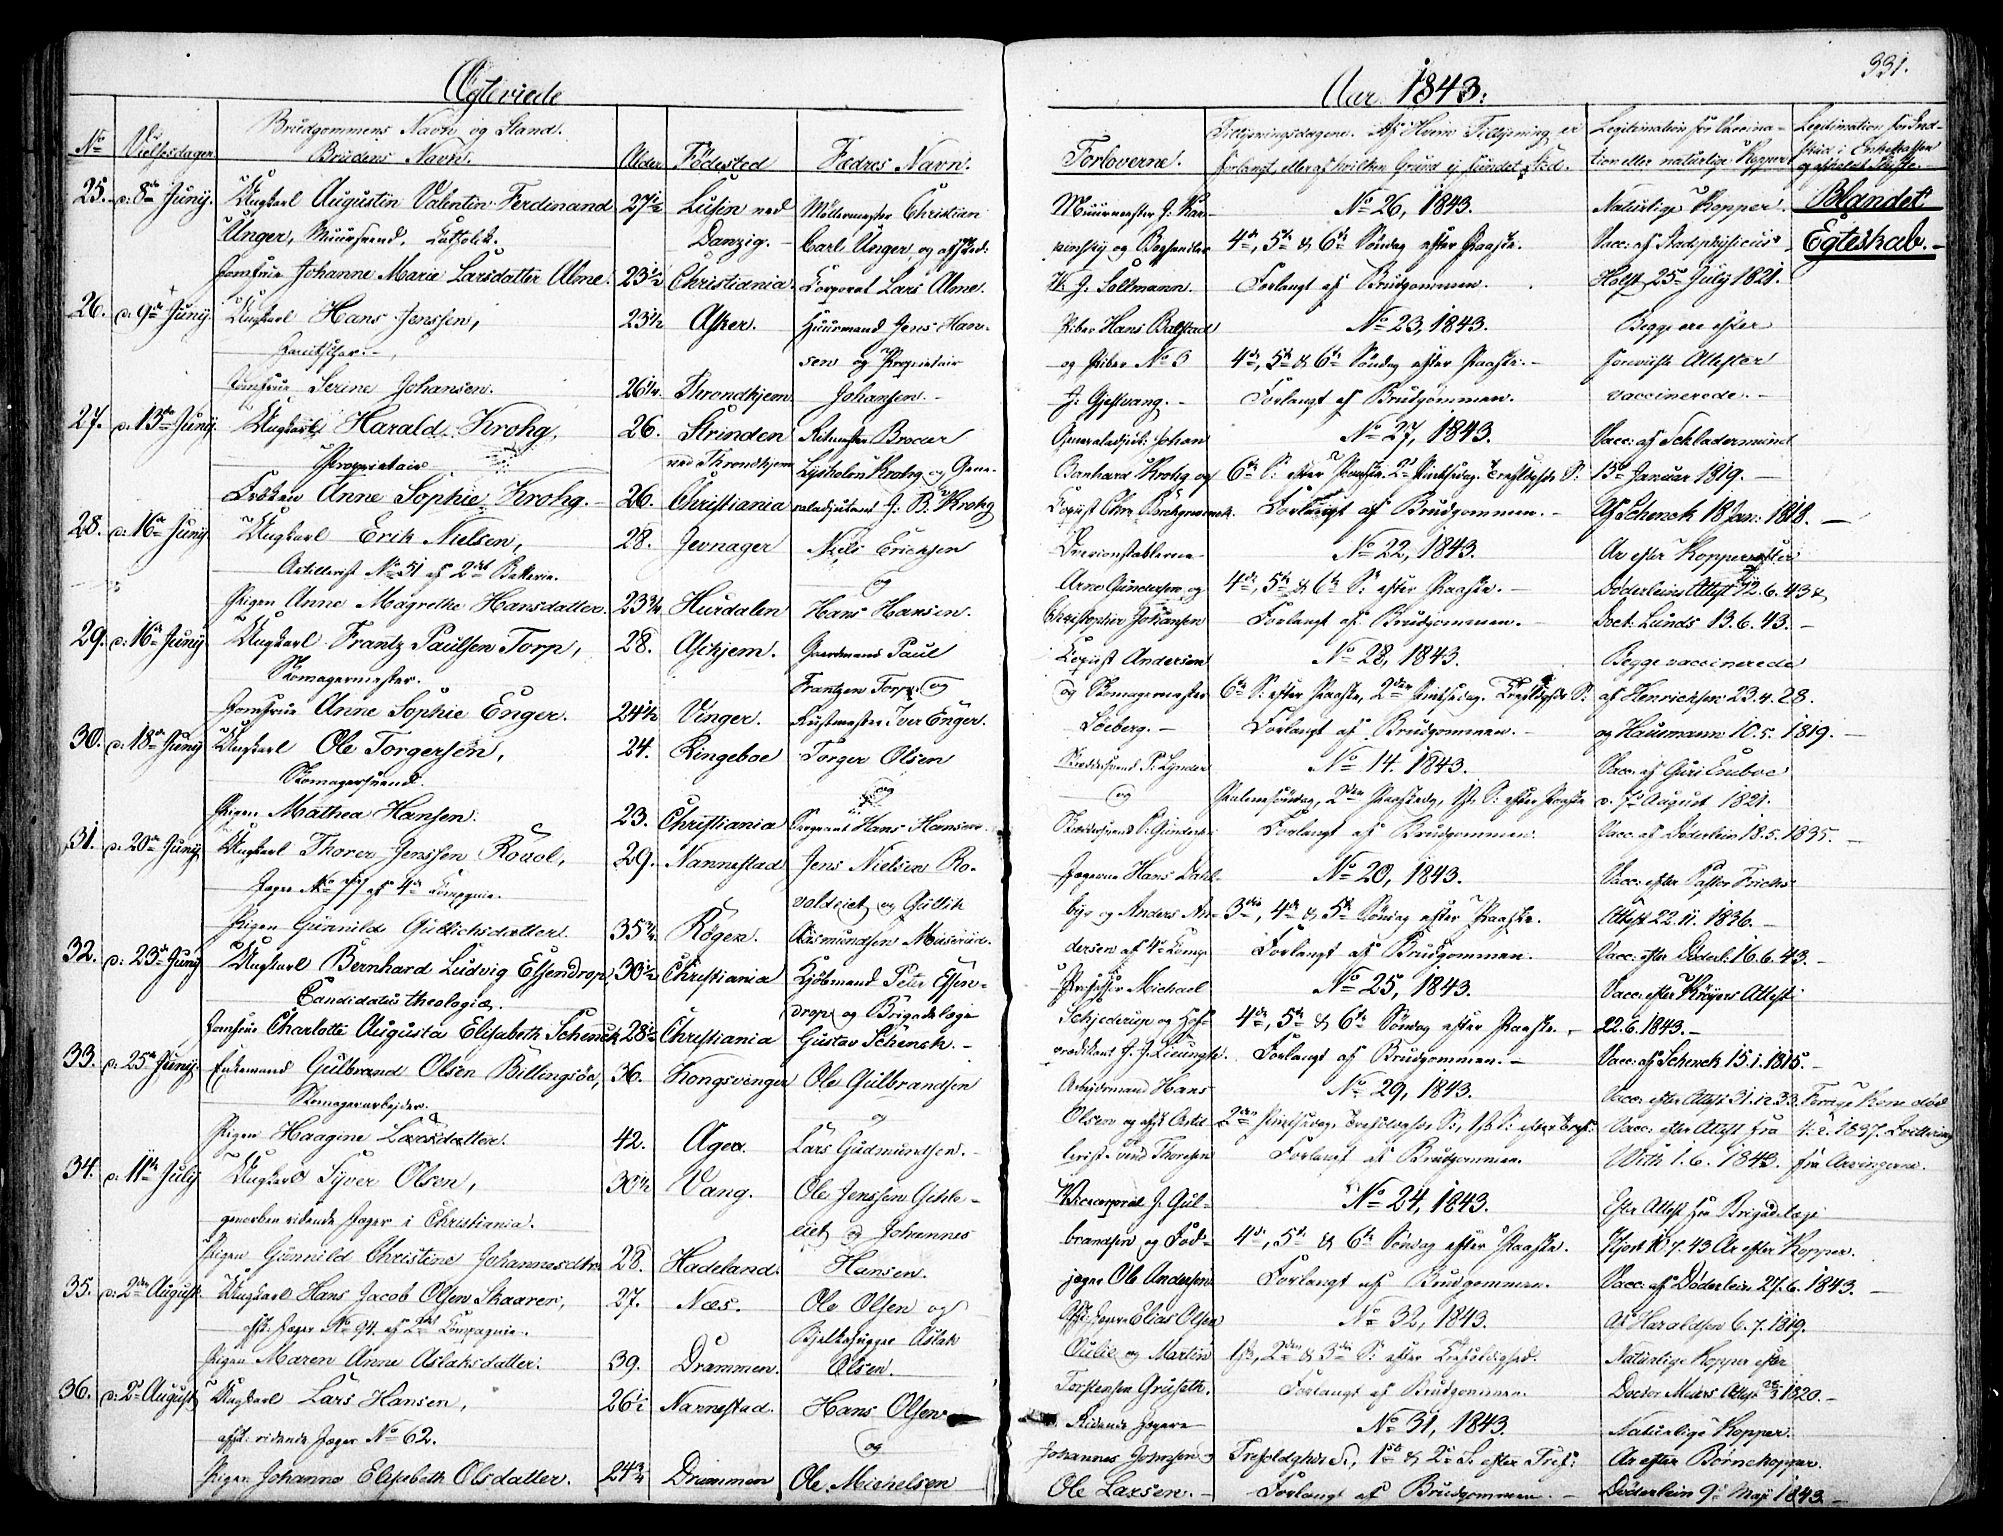 Ægteviede
Aar 1843.
331.
No
Vielsesdagen
Brudgommens Navn og Stand.
Brudens Navn.
Alder
Fødested
Fædres Navn.
Forloverne.
Tillysningsdagene. Af Hvem Tillysning er
forlangt, eller af hvilken Grund ej fundet Sted.
Legitimation for Vaccina-
tion eller naturlige Kopper
25. d. 8de Junij. Ungkarl Augustin Valentin Ferdinand 27½ Lusin ved Møllermester Christian
Unger, Muursvend, Catholik. Danzig. Carl Unger og afskd:
Jomfrue Johanne Marie Larsdatter Alme. 23½ Christiania. Corporal Lars Alme.
26. d. 9de Junij. Ungkarl Hans Jenssen, 23½ Asker. Huusmand Jens Han-
sen og Proprietair
Jomfrue Serine Johansen. 26¼ Throndhjem Johansen.
27. d. 13de Junij. Ungkarl Harald Krohg, 26. Strinden Ritmester Brocar
Proprietair ved Throndhjem Lysholm Krohg og Gene-
Frøken Anne Sophie Krohg. 26. Christiania raladjutant G. B. Krohg
28. d. 16de Junij Ungkarl Erik Nielsen, 28. Jevnager Niels Ericksen
Artillerist No 51 af 2det Batterie. og
Pigen Anne Magrethe Hansdatter. 23¾ Hurdalen Hans Hansen.
29. d. 16de Junij Ungkarl Frantz Paulsen Torp, 28. Aschjem. Gaardmand Paul
Skomagermester. Frantzen Torp og
Jomfrue Anne Sophie Enger. 24½ Vinger. Iver Enger.
30. d. 18de Junij Ungkarl Ole Torgersen, 24. Ringeboe Torger Olsen
Skomagersvend. og
Pigen Mathea Hansen. 23. Christiania Sergeant Hans Hansen
31. d. 20de Junij Ungkarl Thorer Jenssen Rovol, 29. Nannestad Jens Nielsen Ro-
Jæger No 77 af 4de Compagnie. valdeiet og Gullik
Pigen Gunnild Gullichsdatter. 35¾ Røgen. Asmundsen
32. d. 23de Junij Ungkarl Bernhard Ludvig Essendrop, 30½ Christiania Kjøbmand Peter Essen-
Candidatus theologiæ. drop og Brigadelæge
Jomfrue Charlotte Augusta Elisabeth Schenck 28½ Christiania Gustav Schenck.
33. d. 25de Junij. Enkemand Gulbrand Olsen Billingsøe, 36. Kongsvinger Ole Gulbrandsen
Skomagerarbejder. og
Pigen Haagine Larsdatter. 42. Ager. Lars Gudmundsen.
34. d. 11te Julij Ungkarl Syver Olsen, 30½ Vang. Ole Jenssen
gevorben ridende Jæger i Christiania. eiet og Johannes
Pigen Gunnild Christine Johannesdtr 28. Hadeland. Hansen.
35. d. 2den August Ungkarl Hans Jacob Olsen Skaarer, 27. Næs. Ole Olsen og
afsk: Jæger No 94 af 2det Compagnie. Bjelkehugger Aslak
Pigen Maren Anne Aslaksdatter. 39. Drammen. Olsen.
36. d. 2den August Ungkarl Lars Hansen, 26½ Nannestad. Hans Olsen
afsk: ridende Jæger No 62. og
Pigen Johanna Elisabeth Olsdatter. 24¾ Drammen Ole Michelsen
Muurmester J. Kar- No 26, 1843. Naturlige Kopper. Blandet
pinsky og Boghandler 4de, 5te & 6te Søndag efter Paaske. Vacc: af Stadsphysicus Egteskab.
J. Soltmann. Forlangt af Brudgommen. Holst 25de July 1821.
Piber Hans Balstad No 23, 1843. Begge ere efter
og Piber No 3 4de, 5te & 6te Søndag efter Paaske. foreviste Attester
J. Gjestvang. Forlangt af Brudgommen. vaccinerede.
Generaladjut: Johan No 27, 1843. Vacc: af Schladermund
Bernhard Krohg og 6te S: efter Paaske, 2d Pintsedag, Trefoldigheds S: 13de Januar 1819.
Forlangt af Brudgommen. Af Schenck 18 Jan: 1818.
No 22, 1843. Ar efter Kopper efter
Arne Gundersen og 4de, 5te & 6te S: efter Paaske. Døderleins Attest 12.6.43 &
Christopher Johansen Forlangt af Brudgommen. Doct: Lunds 13.6.43.
August Andersen No 28, 1843. Begge vaccinerede
og Skomagermester 6te S: efter Paaske, 2den Pintsedag, Trefoldigheds S: af Henrichsen 23.4.28.
Soeberg. Forlangt af Brudgommen. og Hausmann 10.5.1819.
Skræddersvend P. Lynder No 14. 1843. Vacc: af Guri
og Palmesøndag, 2den Paaskedag, 1ste S: efter Paaske d. 7de August 1821.
Skræddersvend Forlangt af Brudgommen. Vacc. af Døderlein 18.5.1835.
Jægerne Hans Dahl- No 20, 1843. Vacc: efter Pastor Frichs
by og Anders An- 3die, 4de & 5te Søndag efter Paaske. Attest 22.11.1836.
dersen af 4de Comp Forlangt af Brudgommen. Vacc: efter Døderl: 16.6.43.
Professor Michael No 25, 1843. Vacc: efter Krøyers Attest
Schjederup og Hof- 4de, 5te & 6te Søndag efter Paaske. 22.6.1843.
prædikant Forlangt af Brudgommen. Vacc: af Schenck 15.1.1815.
Arbejdsmand Hans No 29, 1843. Vacc: efter Attest 31.12.33. Forrige Kone død
Olsen og afsk: 2den Pintsedag, Trefoldigheds S:, 1ste S: efter Tref: Vacc: efter Attest fra 4.2.1837. Qvittering
Thoresen Forlangt af Brudgommen. With 1.6.1843. fra Arvingerne.
Vicecorporal J. Gul- No 24, 1843. Efter Attest fra Brigadelæge
brandsen og Fod- 4de, 5te & 6te Søndag efter Paaske. Hjort 10.7.43 Ar efter Kopper.
jæger Ole Andersen Forlangt af Brudgommen. Vacc: af Døderlein 27.6.1843.
Afsk: Jæger Elias Olsen No 32, 1843. Af Haraldsen 6.7.1819.
og Martin 1ste, 2den & 3die S: efter Trefoldighed. Naturlige Kopper efter
Torstensen Gruseth. Forlangt af Brudgommen. Doctor Møers Attest 1820.
Ridende Jægere No 31, 1843. Naturlige Kopper.
Johannes Johnsen & Trefoldigheds S:, 1ste & 2den S. efter Tref: Ar efter Børnekopper.
Ole Larsen. Forlangt af Brudgommen. Døderlein 9de Maj 1843.